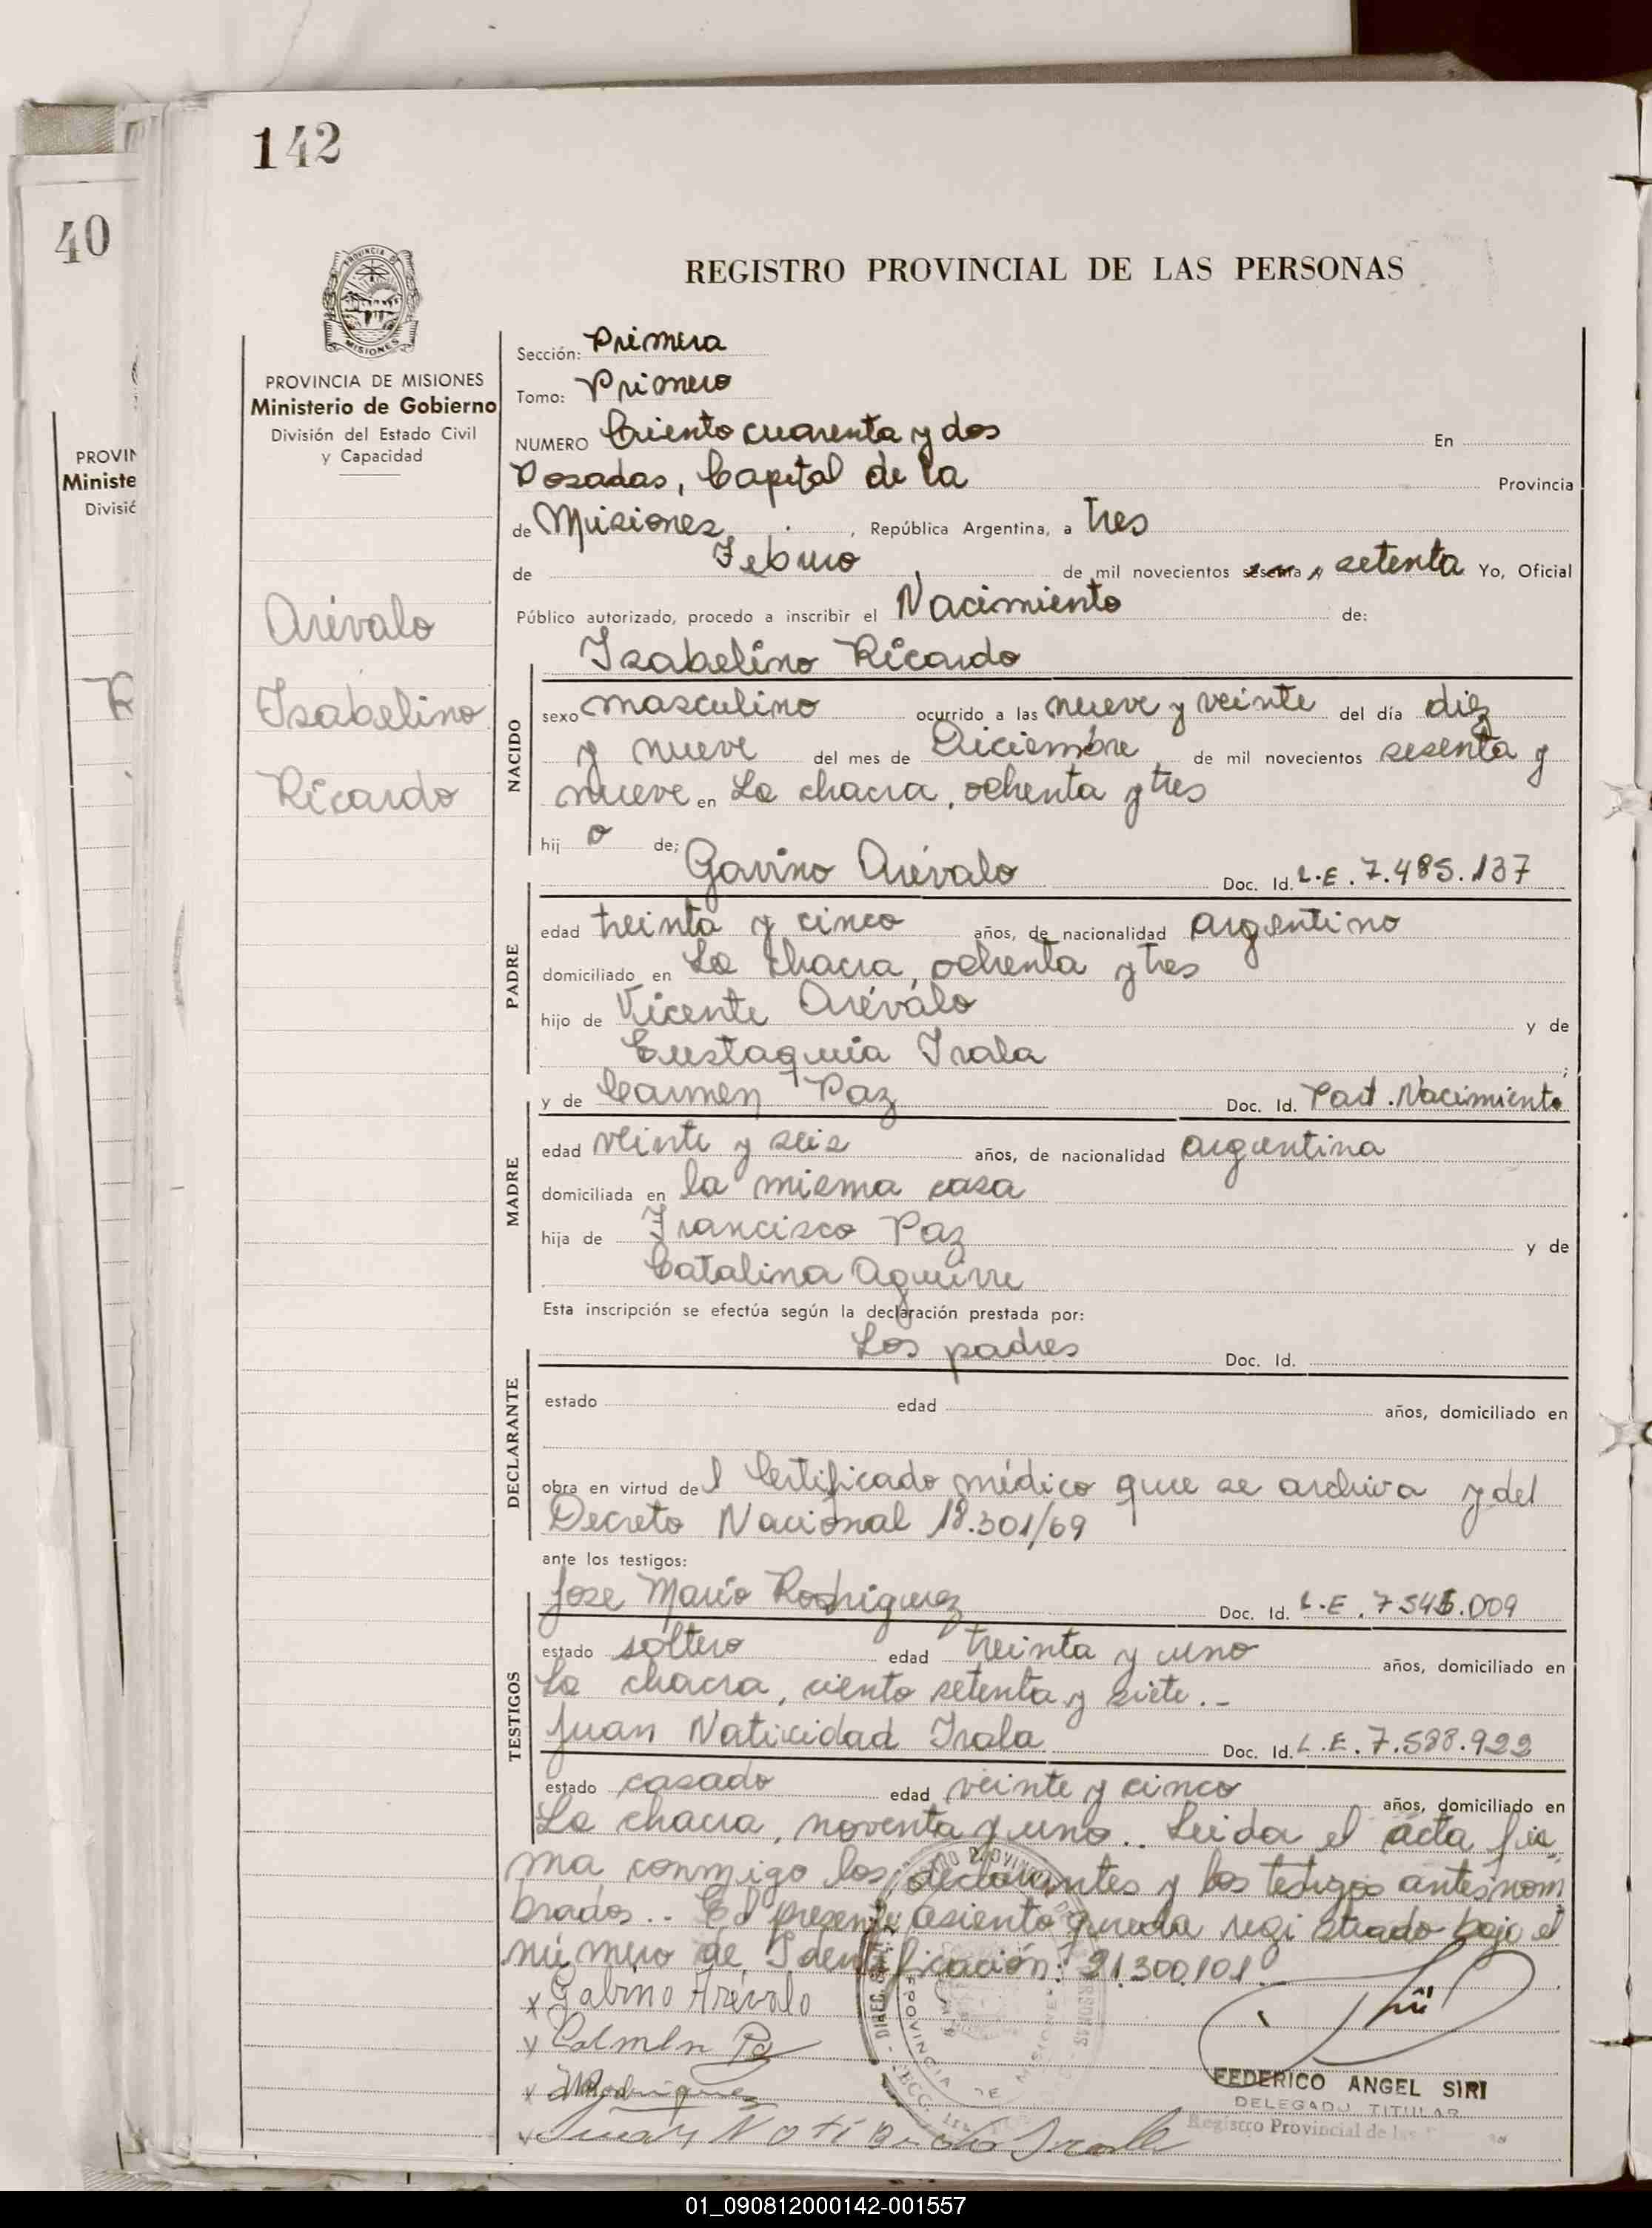 142
40
REGISTRO PROVINCIAL DE LAS PERSONAS
PROVINCIA DE MISIONES
Ministerio de Gobierno
División del Estado Civil
y Capacidad
Arévalo
Isabelino
Ricardo
Sección: Primera
Tomo: Primero
NUMERO Ciento cuarenta y dos En
Posadas, Capital de la Provincia
de Misiones, República Argentina, a tres
de Febrero de mil novecientos sesenta y setenta Yo, Oficial
Público autorizado, procedo a inscribir el Nacimiento de:
Isabelino Ricardo
NACIDO
sexo masculino ocurrido a las nueve y veinte del día diez
y nueve del mes de Diciembre de mil novecientos sesenta y
nueve en La chacra, ochenta y tres
hijo de;
Gavino Arévalo Doc. Id. L.E. 7.485.137
PADRE
edad treinta y cinco años, de nacionalidad argentino
domiciliado en La chacra, ochenta y tres
hijo de Vicente Arévalo y de
Eustaquia Irala;
y de Carmen Paz Doc. Id. Part. Nacimiento
MADRE
edad veinte y seis años, de nacionalidad argentina
domiciliada en la misma casa
hija de Francisco Paz y de
Catalina Aguirre
Esta inscripción se efectúa según la declaración prestada por:
Los padres Doc. Id.
DECLARANTE
estado edad años, domiciliado en
obra en virtud del Certificado médico que se archiva y del
Decreto Nacional 18.301/69
ante los testigos:
TESTIGOS
Jose Mario Rodriguez Doc. Id. L.E. 7.545.009
estado soltero edad treinta y uno años, domiciliado en
La chacra, ciento setenta y siete.-
Juan Natividad Irala Doc. Id. L.E. 7.588.922
estado casado edad veinte y cinco años, domiciliado en
La chacra, noventa y uno.. Leida el acta fir
ma conmigo los declarantes y los testigos antes nom
brados.. El presente asiento queda registrado bajo el
número de Identificación: 21.300.101.
x Gabino Arévalo
x Carmen Paz
x JMRodriguez
x Juan Notibidad Irala
FEDERICO ANGEL SIRI
DELEGADO TITULAR
Registro Provincial de las
01_090812000142-001557